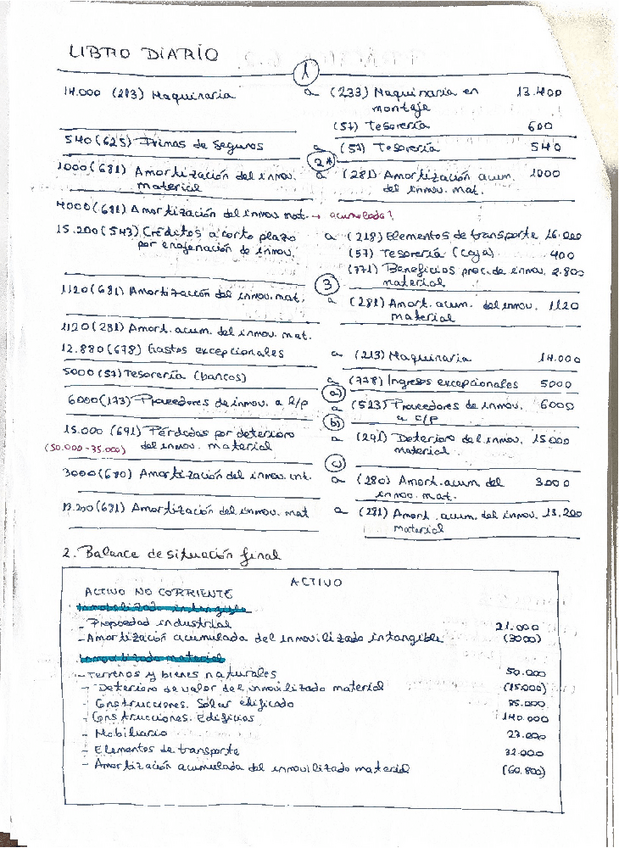 LIBRO DIARIO
1
14.000 (213) Maquinaria a (233) Maquinaria en 13.400
montaje
(57) Tesorería 600
540 (625) Primas de Seguros a (57) Tesorería 540
2*
1000 (681) Amortización del inmov. a (281) Amortización acum. 1000
material del inmov. mat.
4000 (681) Amortización del inmov. mat. → acumulada?
15.200 (543) Créditos a corto plazo a (218) Elementos de transporte 16.000
por enajenación de inmov. (57) Tesorería (caja) 400
(771) Beneficios proc. de inmov. 2.800
material
3
1120 (681) Amortización del inmov. mat. a (281) Amort. acum. del inmov. 1120
material
1120 (281) Amort. acum. del inmov. mat.
12.880 (678) Gastos excepcionales a (213) Maquinaria 14.000
5000 (57) Tesorería (bancos) a (778) Ingresos excepcionales 5000
a)
6000 (173) Proveedores de inmov. a l/p a (523) Proveedores de inmov. 6000
a c/p
b)
15.000 (691) Pérdidas por deterioro a (291) Deterioro del inmov. 15000
(50.000-35.000) del inmov. material material
c)
3000 (680) Amortización del inmov. int. a (280) Amort. acum del 3000
inmov. mat.
13.200 (681) Amortización del inmov. mat a (281) Amort. acum. del inmov. 13.200
material
2. Balance de situación final
ACTIVO
ACTIVO NO CORRIENTE
Inmovilizado intangible
- Propiedad industrial 21.000
- Amortización acumulada del inmovilizado intangible (3000)
Inmovilizado material
- Terrenos y bienes naturales 50.000
- Deterioro de valor del inmovilizado material (15000)
- Construcciones. Solar edificado
- Construcciones. Edificios 140.000
- Mobiliario
- Elementos de transporte 32.000
- Amortización acumulada del inmovilizado material (60.800)